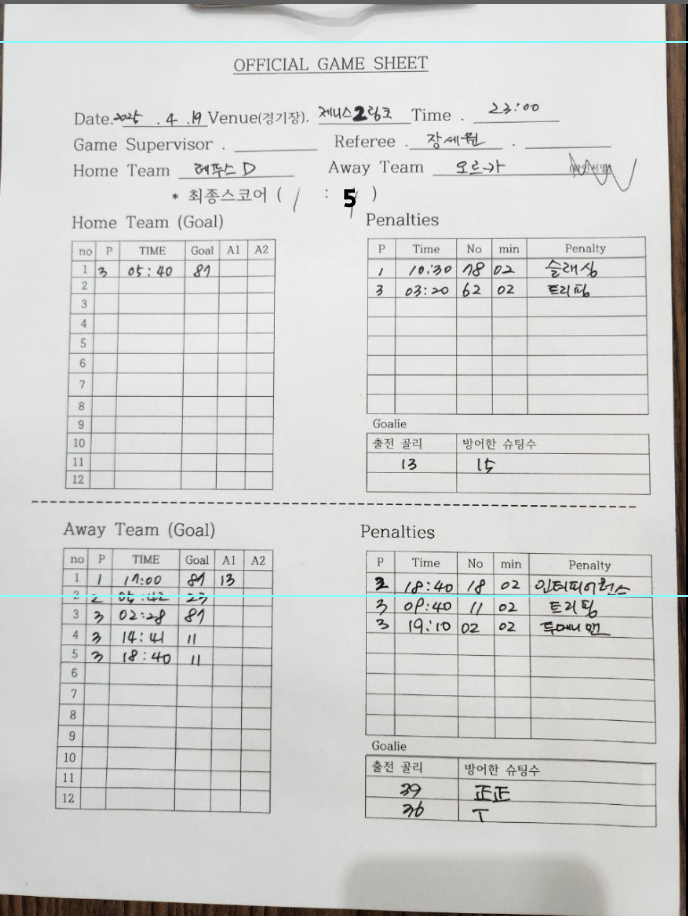 OFFICIAL GAME SHEET
Date. 2025 . 4 . 19 Venue(경기장). 제니스2링크 Time . 23:00
Game Supervisor . Referee . 장세원 .
Home Team 레푸스 D Away Team 오르카
* 최종스코어 ( 1 : 5 )
Home Team (Goal)
no P TIME Goal A1 A2
1 3 05:40 87
2
3
4
5
6
7
8
9
10
11
12
Penalties
P Time No min Penalty
1 10:30 78 02 슬래싱
3 03:20 62 02 트리핑
Goalie
출전 골리 방어한 슈팅수
13 15
Away Team (Goal)
no P TIME Goal A1 A2
1 1 17:00 87 13
2 2 23
3 3 02:28 87
4 3 14:41 11
5 3 18:40 11
6
7
8
9
10
11
12
Penalties
P Time No min Penalty
2 18:40 18 02 인터피어런스
3 09:40 11 02 트리핑
3 19:10 02 02 투매니맨
Goalie
출전 골리 방어한 슈팅수
39 正正
36 丅